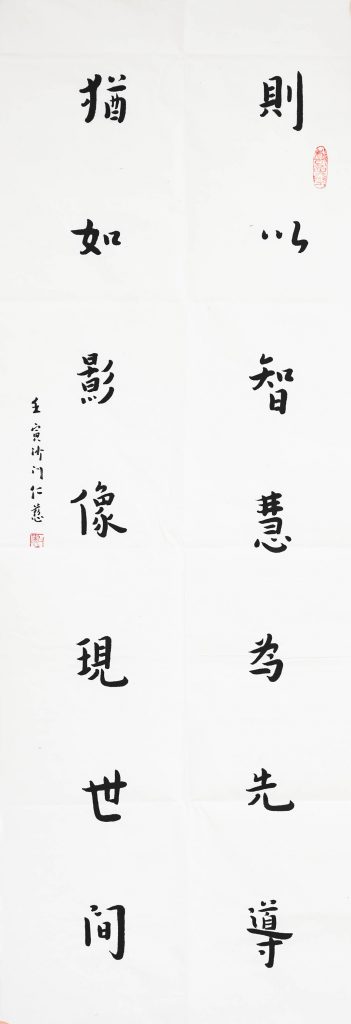 則以智慧為先導
猶如影像現世间
壬寅济门仁慈